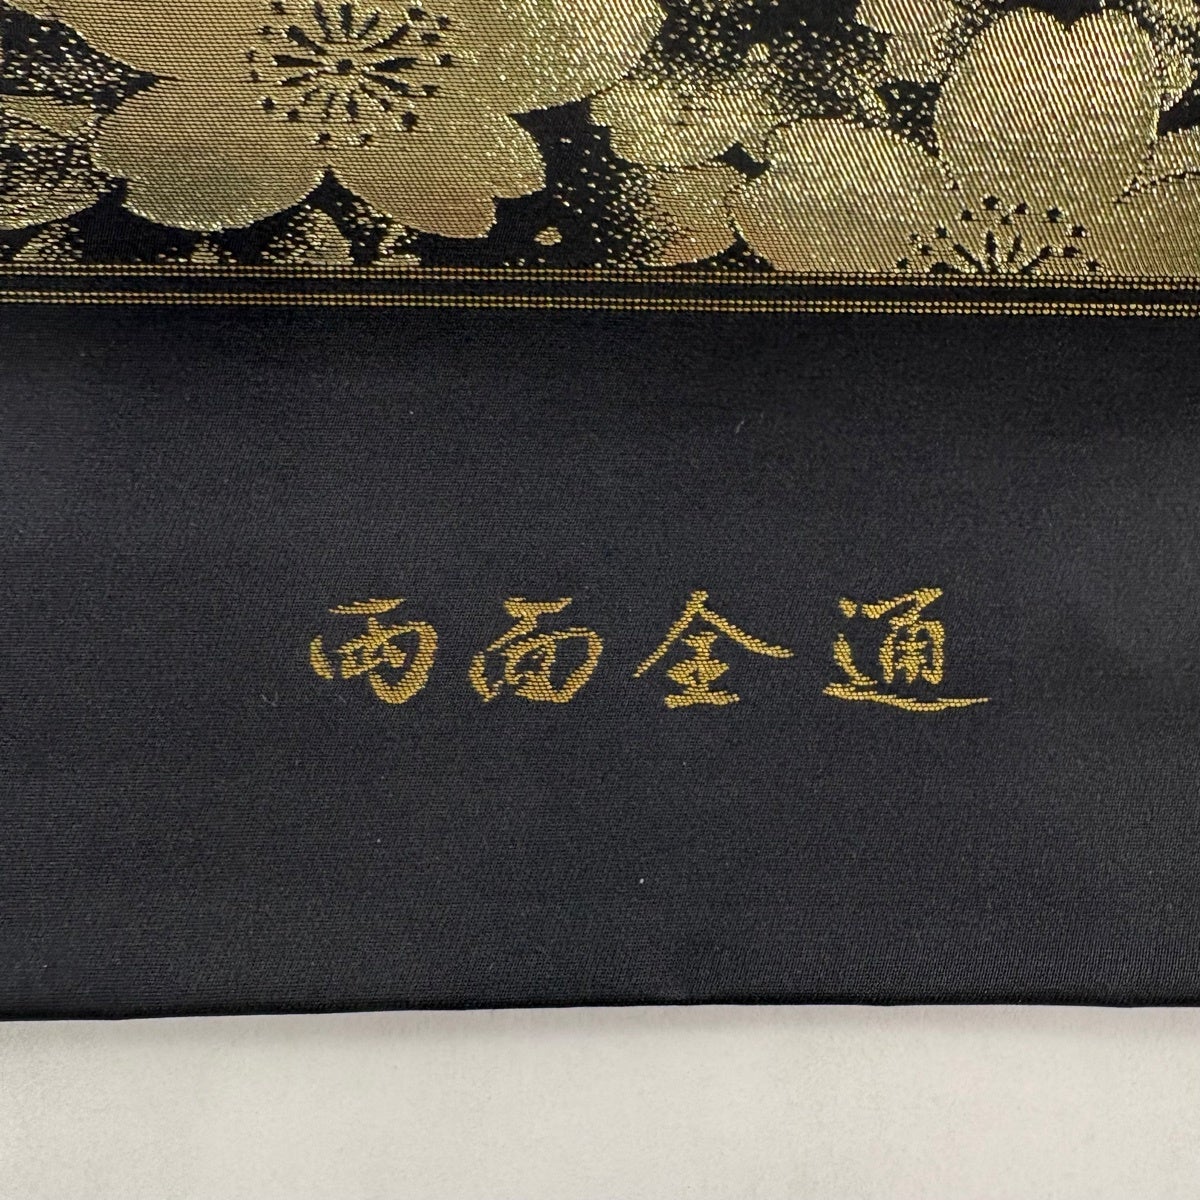 両面全通